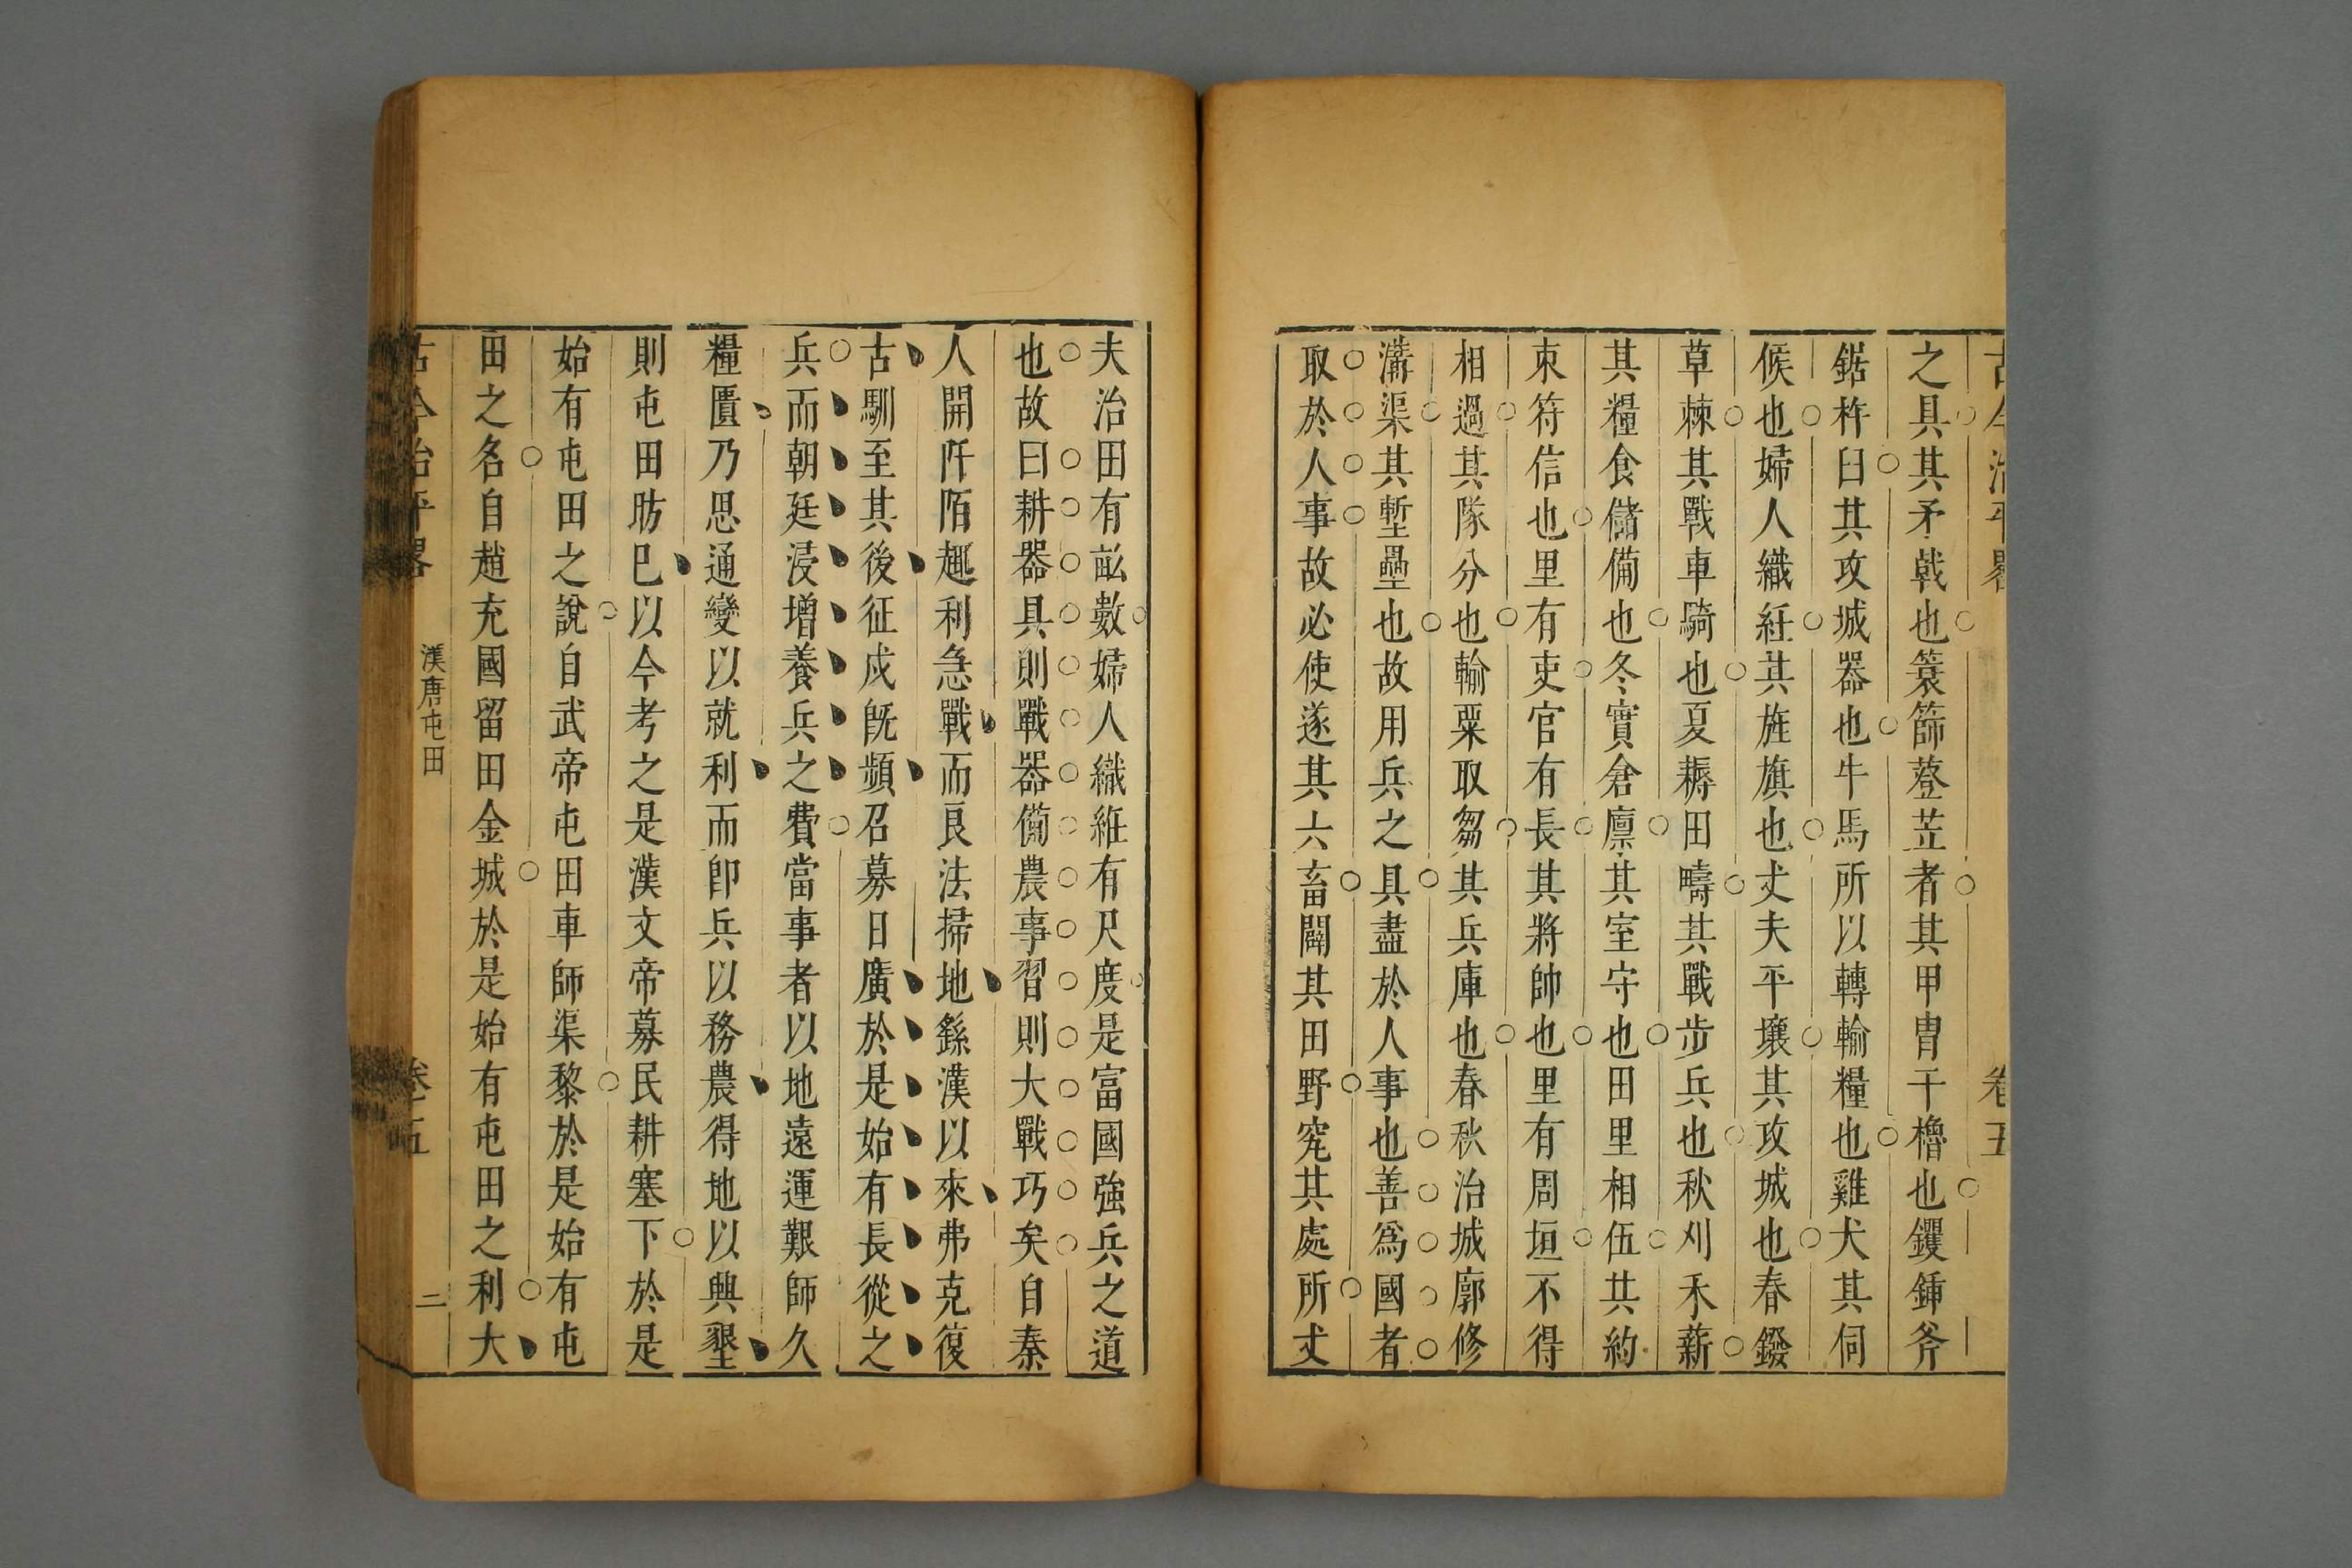 古今治平畧 卷五
之具其矛戟也簑篛簦笠者其甲冑干櫓也钁鍤斧
鋸杵臼其攻城器也牛馬所以轉輸糧也雞犬其伺
候也婦人織紝其旌旗也丈夫平壤其攻城也春鏺
草棘其戰車騎也夏耨田疇其戰步兵也秋刈禾薪
其糧食儲備也冬實倉廪其室守也田里相伍其約
束符信也里有吏官有長其將帥也里有周垣不得
相過其隊分也輸粟取芻其兵庫也春秋治城廓修
溝渠其塹壘也故用兵之具盡於人事也善爲國者
取於人事故必使遂其六畜闢其田野究其處所丈
夫治田有畝數婦人織維有尺度是富國強兵之道
也故曰耕器具則戰器備農事習則大戰巧矣自秦
人開阡陌趣利急戰而良法掃地繇漢以來弗克復
古馴至其後征戍旣頻召募日廣於是始有長從之
兵而朝廷浸增養兵之費當事者以地遠運艱師久
糧匱乃思通變以就利而卽兵以務農得地以興墾
則屯田昉巳以今考之是漢文帝募民耕塞下於是
始有屯田之說自武帝屯田車師渠黎於是始有屯
田之名自趙充國留田金城於是始有屯田之利大
古今治平畧 漢唐屯田 卷五 二